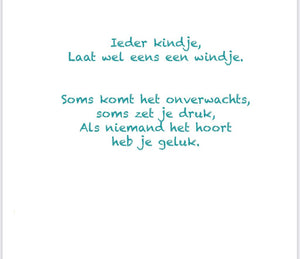 Ieder kindje,
Laat wel eens een windje.
Soms komt het onverwachts,
soms zet je druk,
Als niemand het hoort
heb je geluk.